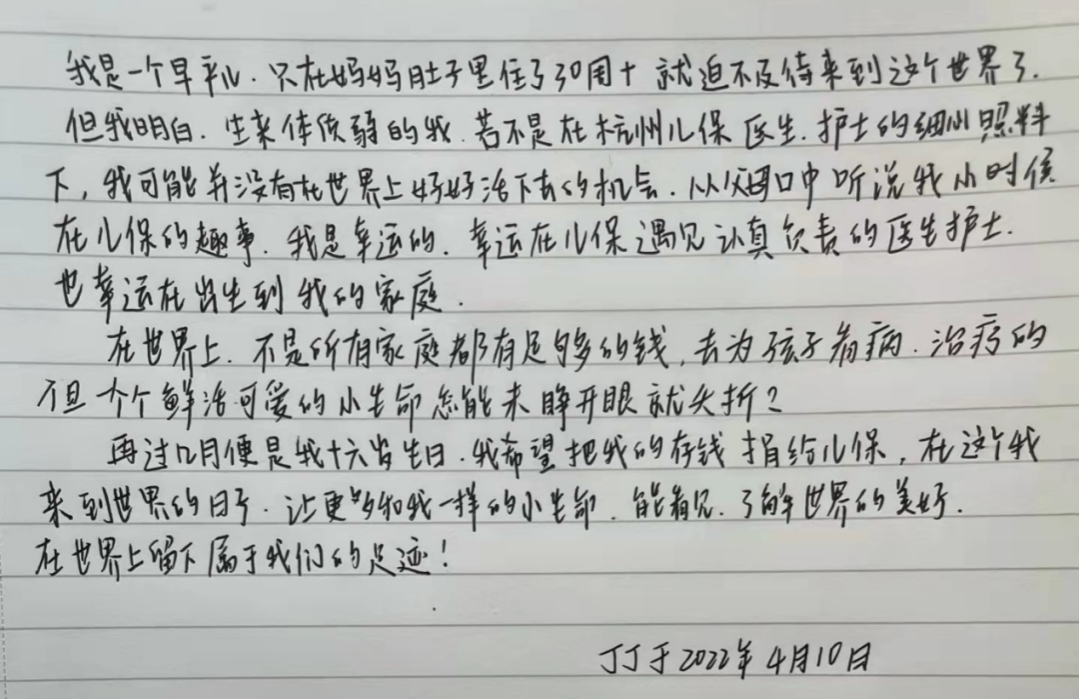 我是一个早产儿.只在妈妈肚子里住了30周+就迫不及待来到这个世界了.
但我明白.生来体质弱的我.若不是在杭州儿保医生.护士的细心照料
下,我可能并没有在世界上好好活下去的机会.从父母口中听说我小时候
在儿保的趣事.我是幸运的.幸运在儿保遇见认真负责的医生护士.
也幸运在出生到我的家庭.
在世界上.不是所有家庭都有足够多的钱,去为孩子看病.治疗的
但个个鲜活可爱的小生命怎能未睁开眼就夭折?
再过几月便是我十六岁生日.我希望把我的存钱捐给儿保,在这个我
来到世界的日子.让更多和我一样的小生命.能看见.了解世界的美好.
在世界上留下属于我们的足迹!
丁丁于2022年4月10日